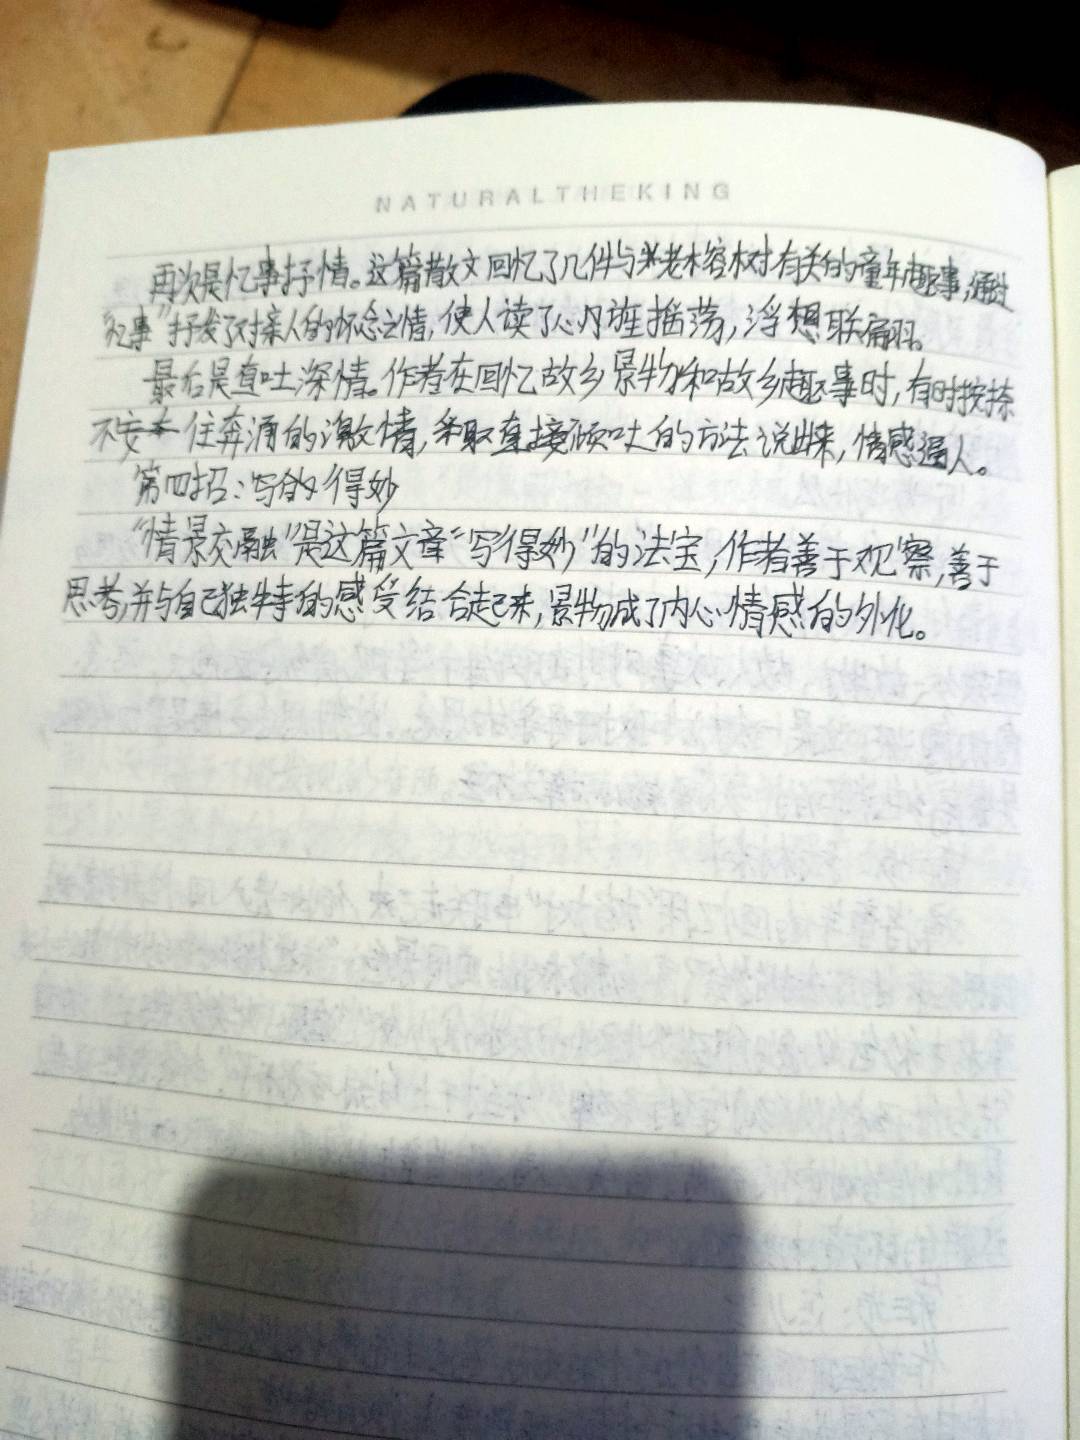 NATURALTHEKING
再次是忆事抒情。这篇散文回忆了几件与老榕树有关的童年趣事,通过
"忆事"抒发了对亲人的怀念之情,使人读了心旌摇荡,浮想联翩。
最后是直吐深情。作者在回忆故乡景物和故乡趣事时,有时按捺
不住奔涌的激情,采取直接倾吐的方法说出来,情感逼人。
第四招:写的得妙
"情景交融"是这篇文章"写得妙"的法宝,作者善于观察,善于
思考,并与自己独特的感受结合起来,景物成了内心情感的外化。